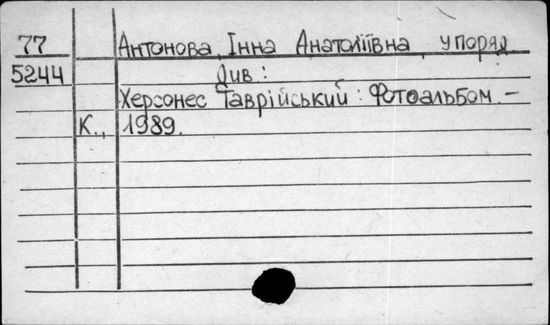 77 Антонова, Інна Анатоліївна, упоряд.
5244 Див.:
Херсонес Таврійський: Фотоальбом. –
К., 1989.